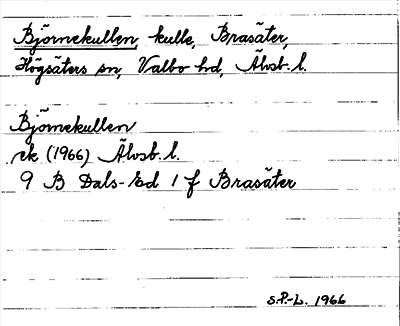 Björnekullen, kulle, Brasäter,
Högsäters sn, Valbo hd, Älvsb. l.
Björnekullen
ek (1966) Älvsb. l.
9 B Dals-Ed 1 f Brasäter
S.P.-L. 1966